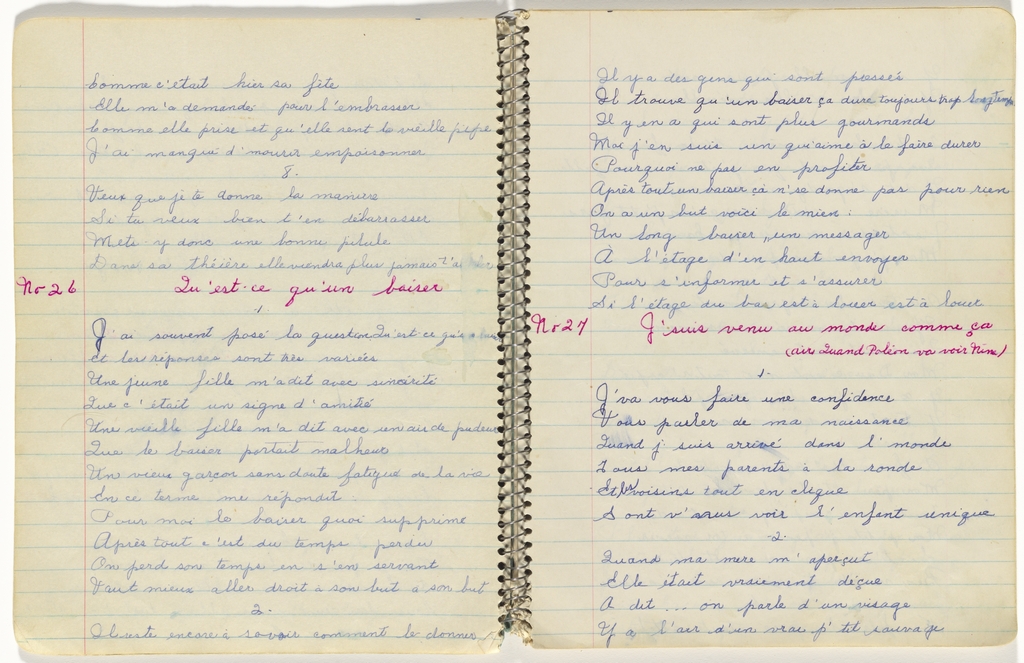 Comme c'était hier sa fête
Elle m'a demandé pour l'embrasser
Comme elle prise et qu'elle sent la vieille pipe
J'ai manqué d'mourir empoisonner
8.
Veux que je te donne la manière
Si tu veux bien t'en débarrasser
Mets-y donc une bonne pilule
Dans sa théière elle viendra plus jamais
No 26 Qu'est-ce qu'un baiser
1
J'ai souvent posé la question Qu'est ce qu'un
Et les réponses sont très variées
Une jeune fille m'a dit avec sincérité
Que c'était un signe d'amitié
Une vieille fille m'a dit avec un air de pudeur
Que le baiser portait malheur
Un vieux garçon sans doute fatigué de la vie
En ce terme me répondit
Pour moi le baiser quoi supprime
Après tout c'est du temps perdu
On perd son temps en s'en servant
Vaut mieux aller droit à son but à son but
2.
Il reste encore à savoir comment le donner
Il y a des gens qui sont pressés
Il trouve qu'un baiser ça dure toujours trop longtemps
Il y en a qui sont plus gourmands
Moi j'en suis un qui aime à le faire durer
Pourquoi ne pas en profiter
Après tout un baiser ça n'se donne pas pour rien
On a un but voici le mien :
Un long baiser, un messager
À l'étage d'en haut envoyer
Pour s'informer et s'assurer
Si l'étage du bas est à louer est à louer
No 27 J'suis venu au monde comme ça
(air Quand Poléon va voir Nina)
1.
J'va vous faire une confidence
Vous parler de ma naissance
Quand j'suis arrivé dans l'monde
Tous mes parents à la ronde
Et les voisins tout en clique
Sont v'nus voir l'enfant unique
2.
Quand ma mère m'aperçut
Elle était vraiement déçue
A dit ... on parle d'un visage
Y a l'air d'un vrai p'tit sauvage